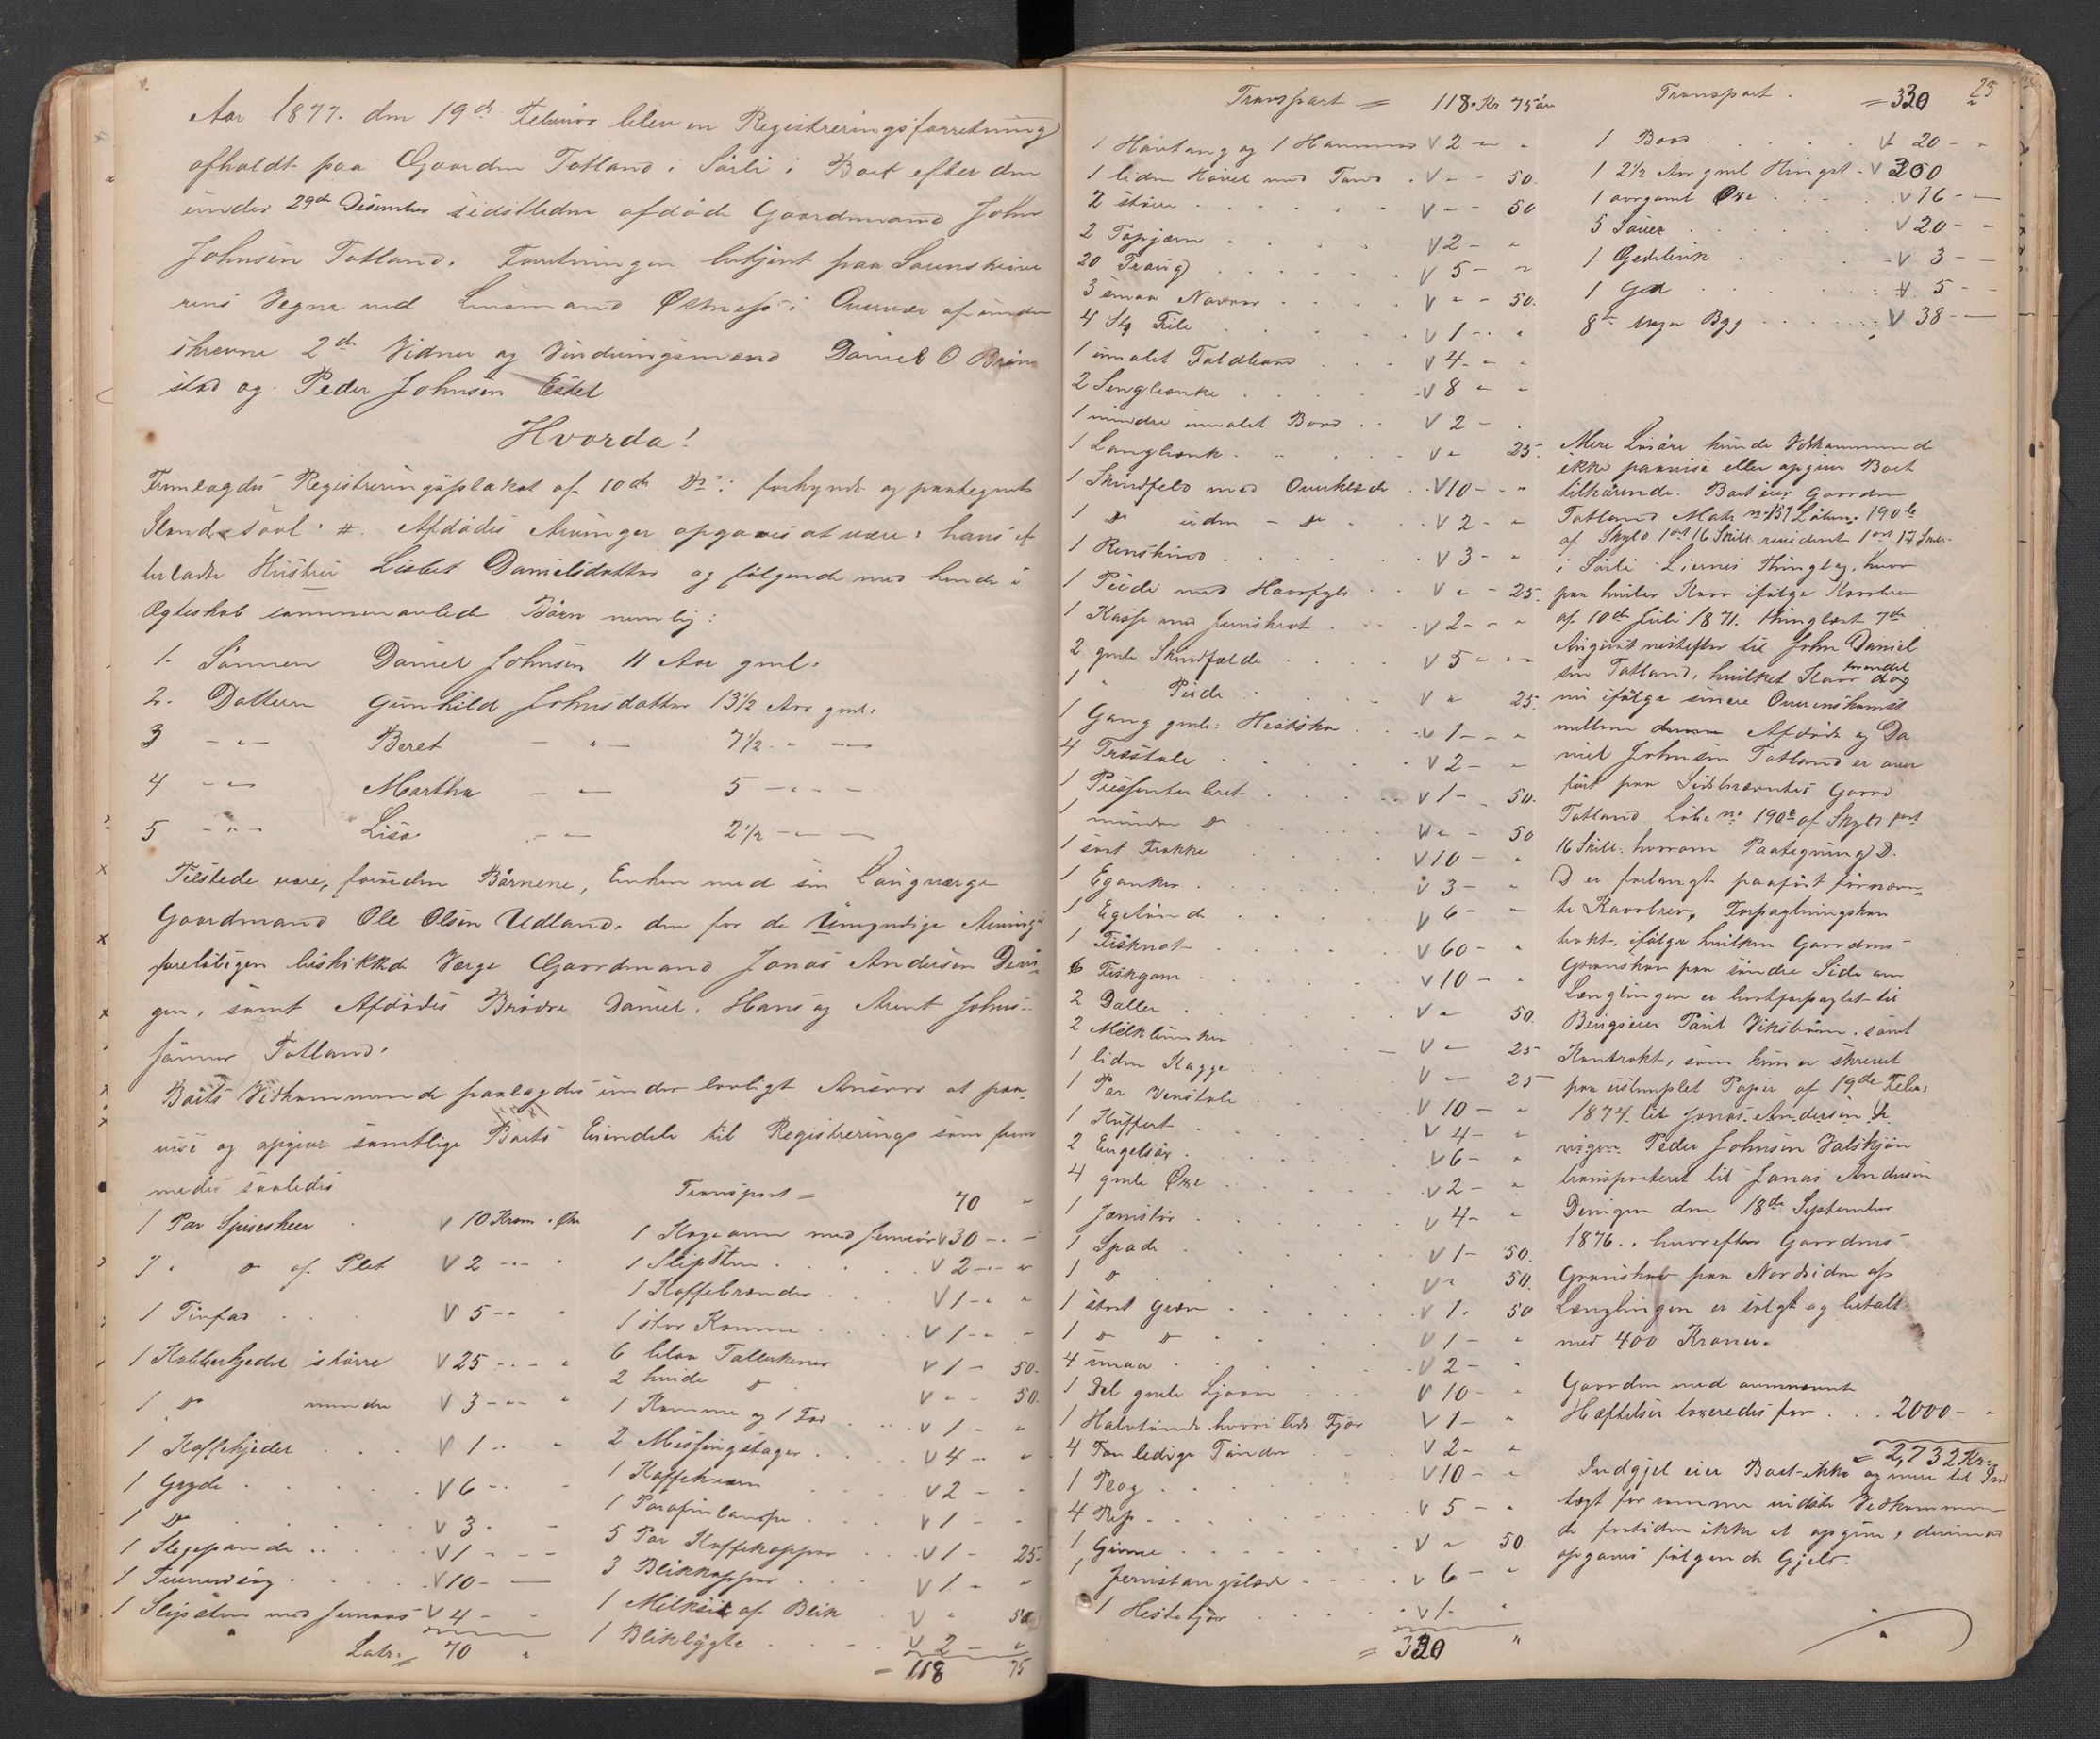 Aar 1877. den 19de Februar blev en Registreringsforretning
afholdt paa Gaarden Totland i Sørli i Boet efter den
under 29de Desember sidstleden afdøde Gaardmand John
Johnsen Totland. Forretningen betjent paa Sorenskrive
rens Vegne ved Lensmand Østness i Overvær af under
skrevne 2de Vidner og Vurderingsmænd Daniel O
stad og Peder Johnsen Estil
Hvorda!
Fremlagdes Registreringsplakat af 10de Ds. forkyndt og paategnet
Afdødes Arvinger opgaves at være: hans ef
terladte Hustru Lisbet Danielsdatter og følgende med hende i
Ægteskab sammenavlede Børn nemlig:
1. Sønnen Daniel Johnsen 11 Aar gml.
2. Datteren Gunhild Johnsdatter 13½ Aar gml.
3 - " - Beret - " - 7½ - " -
4 - " - Martha - " - 5 - " -
5 - " - Lisa - " - 2½ - " -
Tilstede vare, foruden Børnene, Enken med sin Laugværge
Gaardmand Ole Olsen Udland. den for de Umyndige Arving
foreløbigen beskikkede Værge Gaardmand Jonas Andersen Devi
gen, samt Afdødes Brødre Daniel, Hans og Arent Johns-
sønner Totland.
Boets Vedkommende paalagdes under lovligt Ansvar at paa
vise og opgive samtlige Boets Eiendele til Registrering som frem
medes saaledes
1 Par Spiseskeer V 10 Kron " Øre
1 " Do af Plet V 2 - "
1 Tinfad V 5 - "
1 Kobberkjedel større V 25 - "
1 Do mindre V 3 - "
1 Kaffekjedel V 1 - "
1 Gryde V 6 - "
1 Do V 3 -
1 Stegepande V 1 - -
1 Tømmersag V 10 -
1 Slipsten med Jernaas V 4 -
Lats. = 70 "
Transport = 70 "
1 Kogeovn med Jernrør V 30 - -
1 Slipsten V 2 - "
1 Kaffebrænder V 1 - "
1 stor Kumme V 1 - "
6 blaa Tallerkener V 1 - 50.
2 hvide Do V " - 50.
1 Kumme og 1 Fad V 1 - "
2 Messingstager V 4 - "
1 Kaffekværn V 2 -
1 Parafinlampe V 1 -
5 Par Kaffekopper V 1 - 25.
3 Blikkopper V 1 - "
1 Milksil af Blik V " 50
1 Bliklygte V 2 - "
= 118 75
Transport = 118 Kr 75 øre
1 Hovtang og 1 Hammer V 2 - "
1 liden Høvel med Tand V " - 50.
2 større V " - 50
2 Tapjern V 2 - "
20 V 5 - "
3 smaa Navrer V " - 50.
4 Stk File V 1 - "
1 umalet Foldbord V 4 - "
2 Sengbænke V 8 - "
1 mindre umalet Bord V 2 -
1 Langbænk V " 25.
1 Skindfeld med Overklæde V 10 - "
1 Do uden - Do V 2 - "
1 Renskind V 3 - "
1 Pude med Haarfyld V " - 25.
1 Kasse med Jernskrot V 2 - "
2 gmle Skindfælde V 5 - "
1 " Pude V " 25.
1 Gang gmle Hestsko V 1 - "
4 Træstole V 2 - "
1 V 1 - 50.
1 mindre Do V " - 50
1 sort Frakke V 10 - "
1 Eganker V 3 - "
1 Egetønde V 6 - "
1 Fisknot V 60 - "
6 Fiskgarn V 10 - "
2 Daller V " 50.
2 V " 25
1 liden Kagge V " 25
1 Par V 10 - "
1 Kuffert V 4 - "
2 V 6 - "
4 gmle Øxe V 2 - "
1 Jærnstør V 4 - "
1 Spade V 1 - 50.
1 Do V " 50.
1 stort V 1. 50
1 Do Do V 1 - "
4 smaa V 2 - "
1 Del gmle Ljaaer V 10 - "
1 Halvtønde hvori lidt Tjær V 1 - "
4 ledige Tønder V 2 - "
1 Plog V 10 - "
4 Rep V 5 - "
1 V " 50.
1 V 6 - "
1 Hestetjor V 1 - "
= 330 "
25
Transport = 330 "
1 Baad V 20 - "
1 2½ Aar gml Hingst V 200
1 aargaml Oxe V 16 -
5 Sauer V 20 - "
1 Gedebuk V 3 -
1 Ged V 5 -
8te Byg V 38 -
Mere Løsøre kunde Vedkommende
ikke paavise eller opgive Boet
tilhørende. Boet eier Gaarden
Totland Matr. no 137 Løbeno. 190b
af Skyld 1 ort 16 Skill. revideret 1 ort 17 Skil.
i Sørli Liernes Thinglag, hvor
paa hviler Kaar ifølge Kaarbrev
af 10de Juli 1871. thinglæst 7de
August næstefter til John Daniel
sen Totland, hvilket Kaar dog
foreendel
nu ifølge senere Overenskomst
mellem Afdøde og Da
niel Johnsen Totland er over
ført paa Sidstnævntes Gaard
Totland Løbe no. 190a af Skyld 1 ort
16 Skill. hvorom Paategning D.
D er forlangt paaført førnævn-
te Kaarbrev, Forpagtningskon
trakt, ifølge hvilken Gaardens
Granskov paa søndre Side av
Længlingen er bortforpagtet til
Brugseier Paul Vikstrøm. samt
Kontrakt, som kun er skrevet
paa ustemplet Papir af 19de Febr.
1874 til Jonas Andersen De
vigen Peder Johnsen Valskjøn
transporteret til Jonas Andersen
Devigen den 18de September
1876., hvorefter Gaardens
Granskov paa Nordsiden af
Længlingen er solgt og betalt
med 400 Kroner.
Gaarden med ovennævnte
Hæftelser taxeredes for ... 2000 - "
= 2,732 Kr.
Indgjel eier Boet ikke og mere til Ind
tægt for samme vidste Vedkommen
de fortiden ikke at opgive, derimod
opgaves følgende Gjeld.